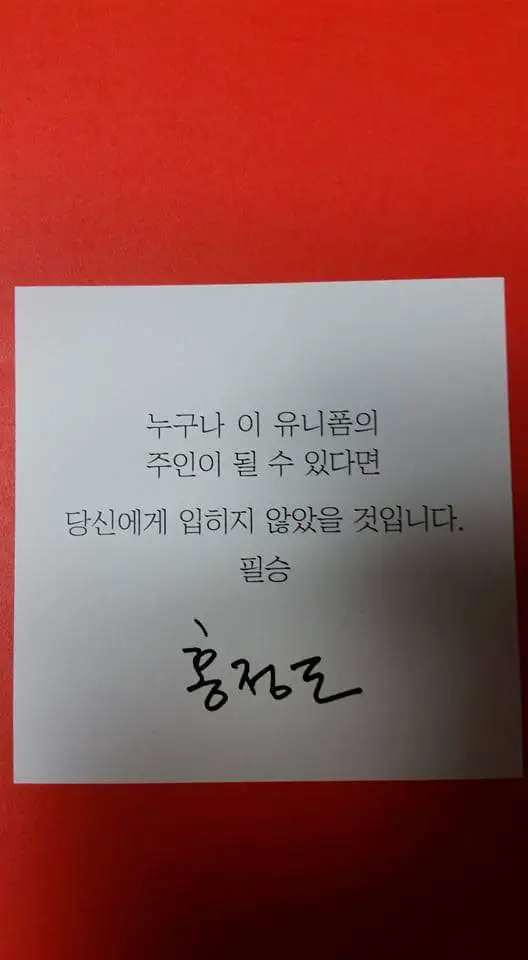 누구나 이 유니폼의
주인이 될 수 있다면
당신에게 입히지 않았을 것입니다.
필승
홍정도